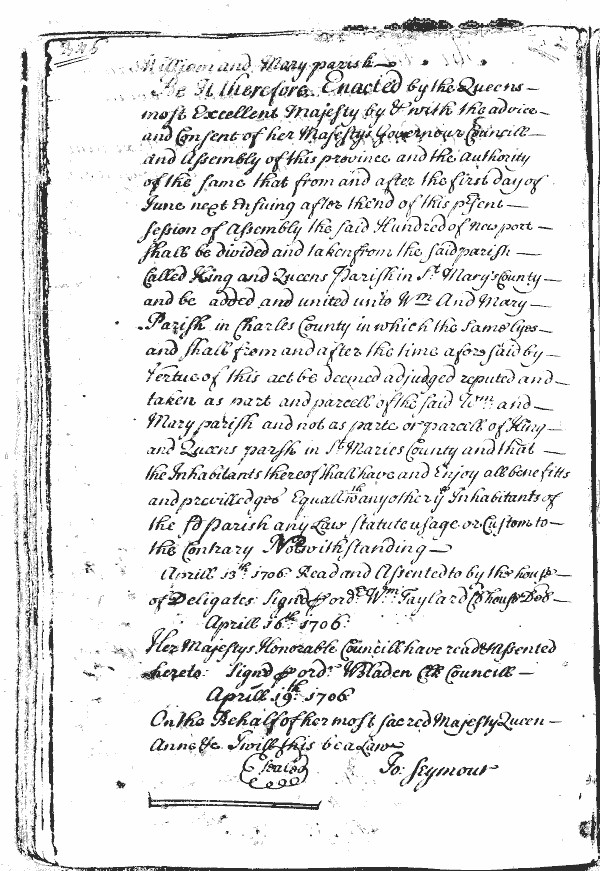 William and Mary parish
Be It therefore Enacted by the Queens
most Excellent Majesty by & with the advice
and Consent of her Majestys Governour Councill
and Assembly of this province and the Authority
of the same that from and after the first day of
June next Ensuing after the end of this psent
session of Assembly the said Hundred of newport
shall be divided and taken from the said parish
Called King and Queens Parish in St. Mary's County
and be added and united unto Wm And Mary
Parish in Charles County in which the same lyes
and shall from and after the time aforesaid by
vertue of this act be deemed adjudged reputed and
taken as part and parcell of the said Wm. and
Mary parish and not as parte or parcell of King
and Queens parsh in St Maries County and that
the Inhabitants thereof shall have and Enjoy all benefitts
and previlledges Equall wth any other ye Inhabitants of
the sd Parish any Law statute usage or Custom to
the Contrary Notwithstanding
Aprill 13th. 1706. Read and Assented to by the house
of Deligates. Signd p ordr. Wm. Taylard Cl house Del
Aprill 16th. 1706.
Her Majestys Honorable Councill have read & Assented
hereto. Signd p ordr. W Bladen Clk Councill
Aprill 19th. 1706
On the Behalf of her most sacred Majesty Queen
Anne &c I will this be a Law
Sealed Jo: Seymour